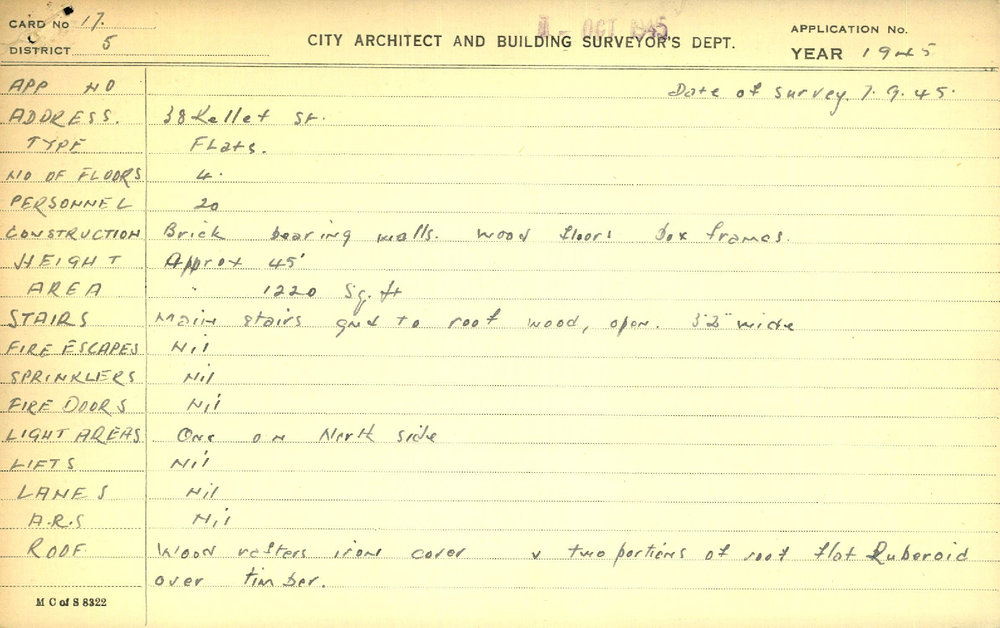 CARD No 17.
DISTRICT 5
OCT 1945
CITY ARCHITECT AND BUILDING SURVEYOR'S DEPT.
APPLICATION No.
YEAR 1945
APP NO
Date of survey. 7.9.45.
ADDRESS. 38 Kellet St.
TYPE Flats.
NO OF FLOORS 4.
PERSONNEL 20
CONSTRUCTION Brick bearing walls. wood floors box frames.
HEIGHT Approx 45'
AREA " 1220 Sq. ft
STAIRS Main stairs gnd to roof wood, open. 3'2" wide
FIRE ESCAPES Nil
SPRINKLERS Nil
FIRE DOORS Nil
LIGHT AREAS One on North side
LIFTS Nil
LANES Nil
A.R.S Nil
ROOF Wood rafters iron cover & two portions of roof flat Ruberoid
over timber.
M C of S 8322